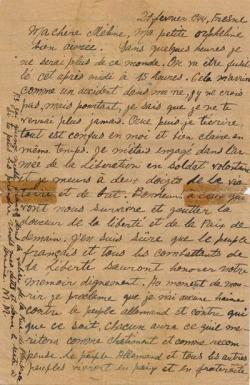 21 février 1944, Fresnes
Ma chère Méline, ma petite orpheline
bien aimée. Dans quelques heures je
ne serai plus de ce monde. On va être fusil-
lé cet après midi à 15 heures. Cela m'arrive
comme un accident dans ma vie, j'y ne crois
pas, mais pourtant, je sais que je ne te
verrai plus jamais. Que puis-je t'écrire,
tout est confus en moi et bien claire en
même temps. Je m'étais engagé dans l'ar-
mée de la Libération en soldat volontaire
et je meurs à deux doigts de la vic-
toire et de but. Bonheur à ceux qui
vont nous survivre et goutter la
douceur de la liberté et de la Paix de
demain. J'en suis sûre que le peuple
français et tous les combattants de
la Liberté sauront honorer notre
mémoire dignement. Au moment de mou-
rir je proclame que je n'ai aucune haine
contre le peuple allemand et contre qui
que ce soit, chacun aura ce qu'il me-
ritera comme châtiment et comme recom-
pense. Le peuple Allemand et tous les autres
peuples vivront en paix et en fraternité